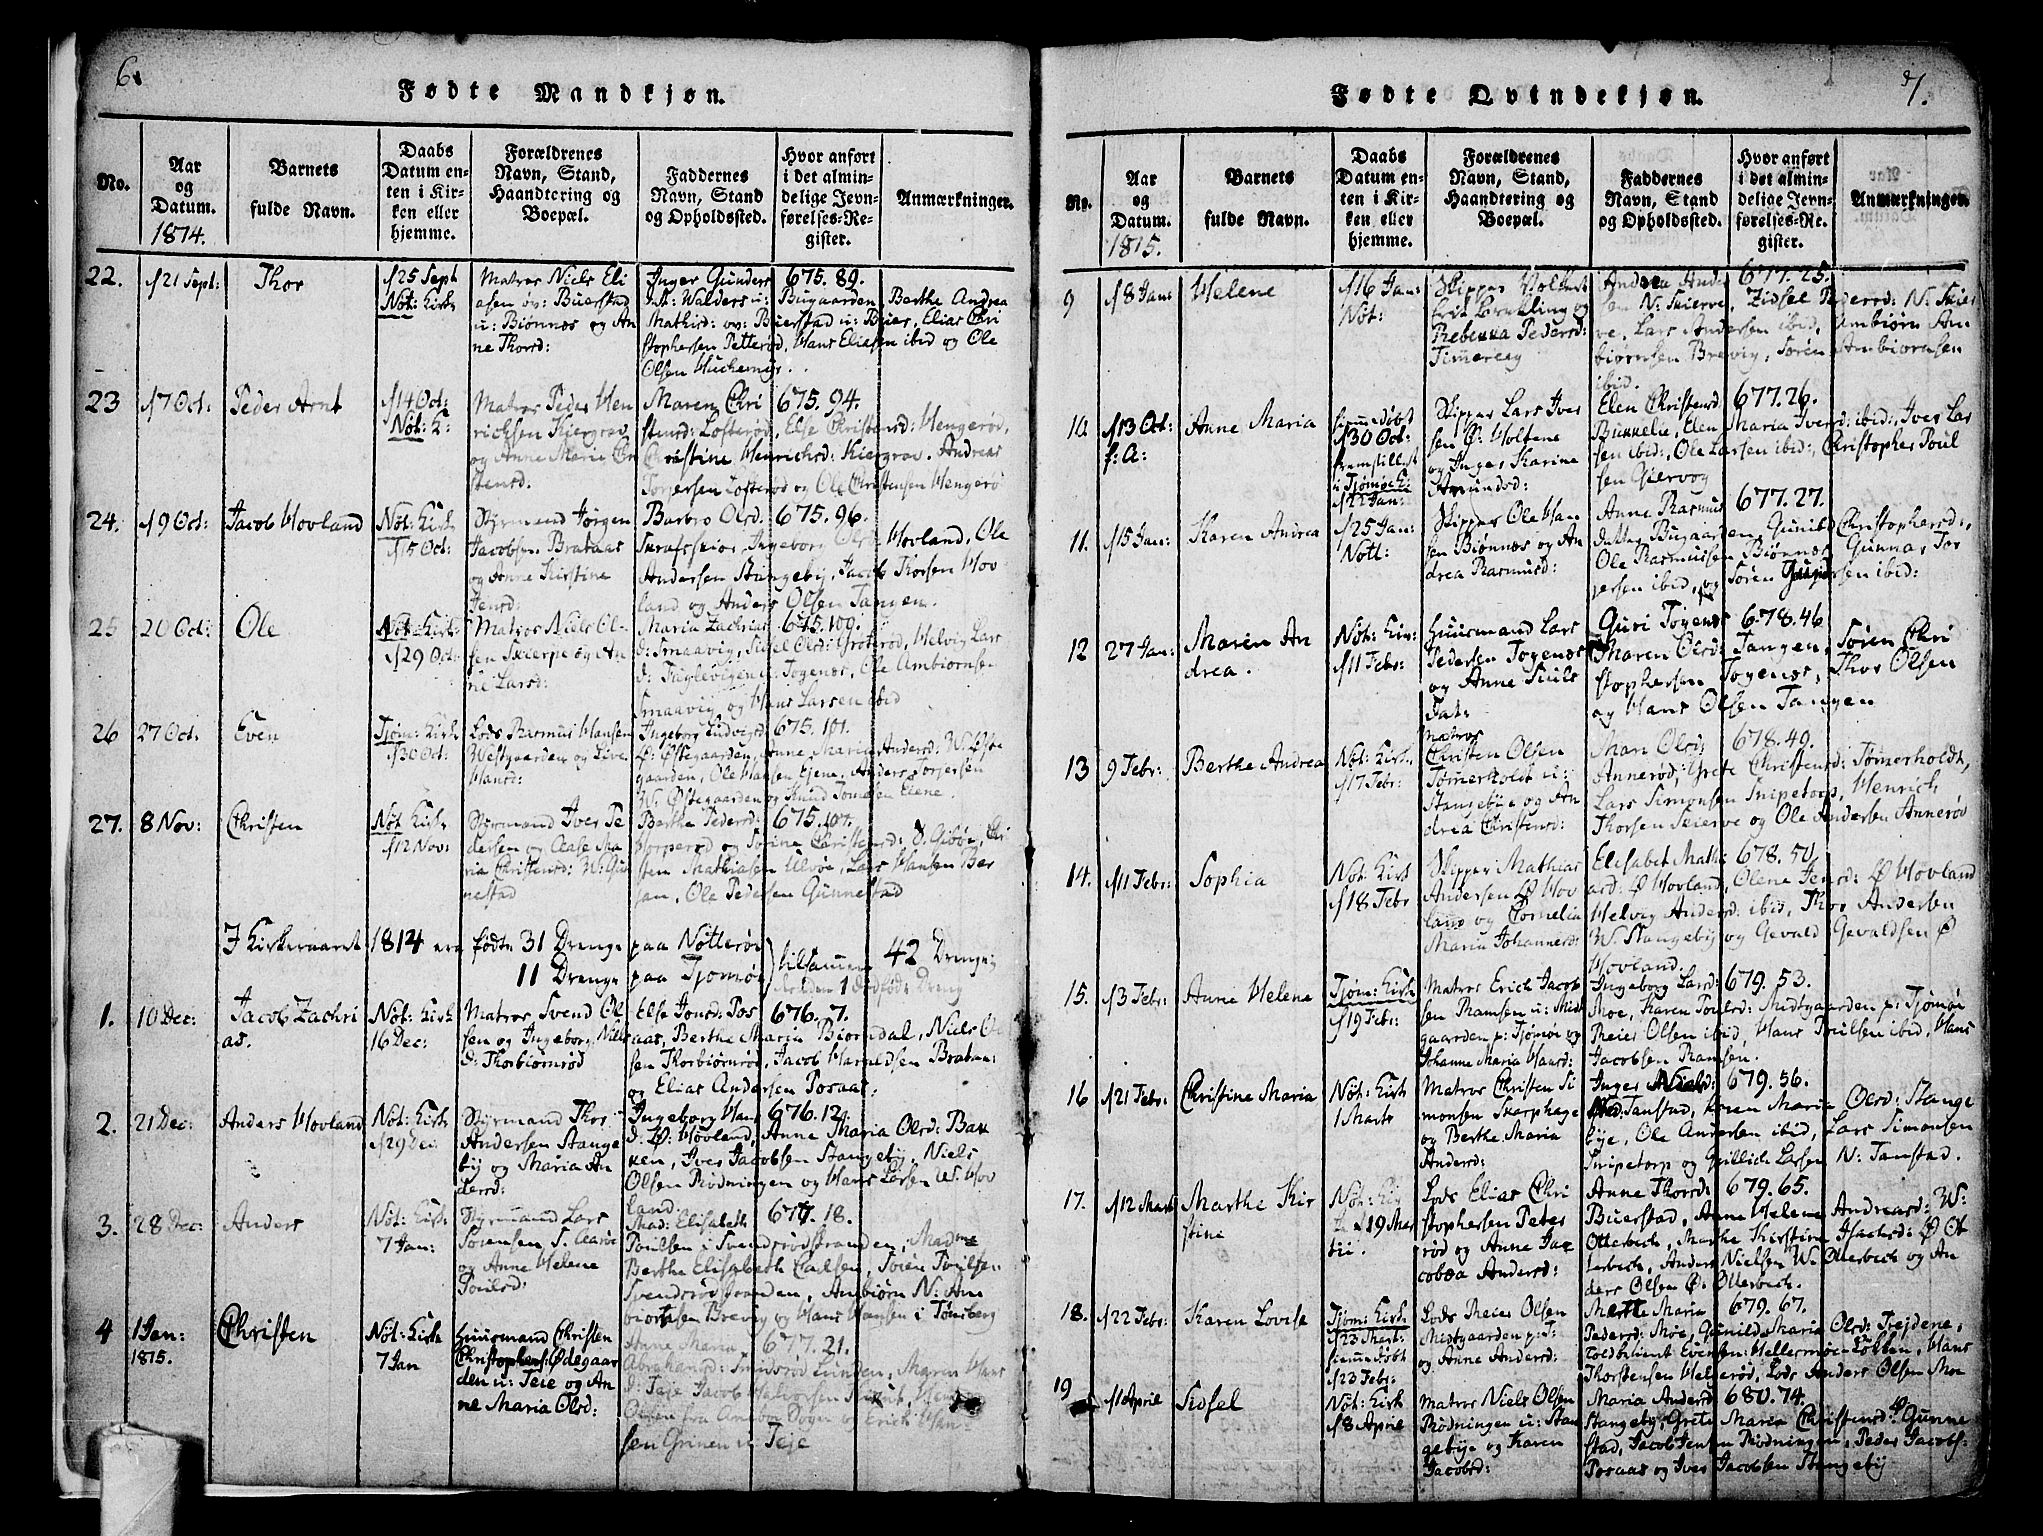 6.
Fødte Mandkjøn.
No.
Aar og Datum. 1814.
Barnets fulde Navn.
Daabs Datum enten i Kirken eller hjemme.
Forældrenes Navn, Stand, Haandtering og Boepæl.
Faddernes Navn, Stand og Opholdsted.
Hvor anført i det almindelige Jevnførelses-Register.
Anmærkninger.
22. d 21 Sept: Thor
d 25 Sept Nøt: Kirk
Matros Niels Eli
asen og: Buerstad
u: Biønnes og An
ne Thorsd:
Inger Gunders 675. 89.
d: Walders u: Bugaarden, Berthe Andrea
Mathisd: ov: Buerstad u: Buer, Elias Chri
stophersen Petterød, Hans Eliasen ibid og Ole
Olsen
23 d 7 Oct: Peder Arnt
d 14 Oct: Nøt: K:
Matros Peder Hen
richsen Kiergrav
og Anne Marie Chri
stensd.
Maren Chri 675. 94.
stensd: Lofterød, Else Christensd: Hengerøe,
Christine Henrichsd: Kiergrav. Andreas
Torjersen Lofterød og Ole Christensen Hengerø
24. d 9 Oct: Jacob Hovland
Nøt: Kirk d 15 Oct:
Styrmand Jørgen
Jacobsen Brataas
og Anne Kirstine
Jensd:
Barbro Olsd. 675. 96.
Ingeborg Olsd Hovland, Ole
Andersen Stangeby, Jacob Thorsen Hov
land og Anders Olsen Tangen.
25 20 Oct: Ole
Nøt: Kirk: d 29 Oct:
Matros Niels Ol-
sen Skierpe og An
ne Larsd:
Maria Zachrias 675. 100.
d: Smaavig, Sidsel Olsd: Grøterød, Helvig Lars
d: Fuglevigen u: Togenes, Ole Ambiørnsen
Smaavig og Hans Larsen ibid
26 27 Oct: Even
Tjøm: Kirk d 30 Oct:
Lods Rasmus Hansen
Westgaarden og Live
Hansd:
Ingeborg Ludvigsd 675. 101.
Ø: Østegaarden, Anne Maria Andersd: W. Øste
gaarden, Ole Hansen Ejene, Anders Torjersen
W. Østegaarden og Knud Tomesen Eiene.
27. 8 Nov: Christen
Nøt Kirk d 12 Nov:
Styrmand Iver Pe
dersen og Aase Ma
ria Christensd: W: Gun
nestad
Berthe Pedersd: 675. 107.
Horperød og Sørine Christensd: Ø. Chri
sten Mathiasen Ulvøe, Lars Hansen Ber
san, Ole Pedersen Gunnestad
I Kirkeaaret 1814 ere fødte 31 Drenge paa Nøtterøe
11 Drenge paa Tjømøe } tilsammen 42 Drenge
foruden 1 dødfødt Dreng
1. 10 Dec: Jacob Zachri
as.
Nøt: Kirk 16 Dec:
Matros Svend Ol
sen og Ingeborg Niels
d: Thorbiørnrød
Else Jonsd: Pos 676. 7.
aas, Berthe Maria Biørndal, Niels Ol
sen Thorbiørnrød, Jacob Haraldsen Bratan:
og Elias Andersen Posaas.
2. 21 Dec: Anders Hovland
Nøt: Kirk d 29 Dec:
Styrmand Thor
Andersen Stange
by og Maria An
dersd:
Ingeborg Hans 676. 12.
d: Ø: Hovland, Anne Maria Olsd: Bak
ken, Iver Jacobsen Stangeby, Niels
Olsen Rødningen og Hans Larsen W. Hov
land.
3. 28 Dec: Anders
Nøt: Kirk. 7 Jan:
Styrmand Lars
Sørensen S. Aarøe
og Anne Helene
Poulsd:
Mad: Elisabeth 677. 18.
Poulsen i Svendsrødstranden, Madme
Berthe Elisabeth Carlsen, Søren Poulsen
Svendsrødstranden, Ambiørn N: Am
biørnsen Brevig og Hans Hansen i Tønsberg
4 1 Jan: 1815. Christen
Nøt: Kirk 7 Jan
Huusmand Christen
Christophers: Ødegaar
den u: Teie og An
ne Maria Olsd:
Anne Maria 677. 21.
Abrahamsd: Lunden, Maren Hans
d: Teje Jacob Halvorsen
Olsen fra og Erich Han
sen Grinen u: Teje
7.
Fødte Qvindekjøn.
No.
Aar og Datum. 1815.
Barnets fulde Navn.
Daabs Datum enten i Kirken eller hjemme.
Forældrenes Navn, Stand, Haandtering og Boepæl.
Faddernes Navn, Stand og Opholdsted.
Hvor anført i det almindelige Jevnførelses-Register.
Anmærkninger.
9 d 8 Jan: Helene
d 16 Jan: Nøt:
Skipper
Rebekka Pedersd:
Andrea Ander 677. 25.
sen N: Skierve, Zidsel Pedersd: N: Skier
ve, Lars Andersen ibid, Ambiørn Am
biørnsen Brevig, Søren Ambiørnsen
ibid.
10. d 13 Oct: f: A: Anne Maria
hiemmedøbt d 30 Oct: fremstillet i Tjømøe K: d 22 Jan:
Skipper Lars Iver
sen Ø: Holtene
og Inger Karine
Amundsd:
Elen Christensd 677. 26.
Bukkelie, Elen Maria Iversd: ibid:, Iver Lar
sen ibid:, Ole Larsen ibid:, Christopher Poul
sen Giervog
11. d 15 Jan: Karen Andrea
d 25 Jan: Nøtt:
Skipper Ole Han
sen Biønnes og An
drea Rasmusd:
Anne Rasmus 677. 27.
datter Bugaarden, Gunild Christophersd:,
Ole Rasmussen Biønnes Gunnar Tor
persen ibid:, og Søren sen ibid:
12 27 Jan: Maren An
drea.
Nøt: Kirk: d 11 Febr:
Huusmand Lars
Pedersen Togenes
og Anne
Guri Togenes 678. 46
Maren Olsd: Tangen, Søren Chri
stophersen Togenes, Thor Olsen
og Hans Olsen Tangen
13 9 Febr: Berthe Andrea
Nøt: Kirk. d 17 Febr:
Matros
Christen Olsen
Tømerholdt u:
Stangebye og An
drea Christensd:
Mari Olsd: 678. 49.
Annerød, Grete Christensd: Tømerholdt,
Lars Simonsen Snipetorp, Henrich
Thorsen Skierve og Ole Andersen Annerød
14. d 11 Febr: Sophia
Nøt: Kirk d 18 Febr
Skipper Mathias
Andersen Ø Hov
land og Cornelia
Maria Johannesd:
Elisabet Mathi 678. 50
asd: Ø Hovland, Olene Jensd: Ø Hovland
Helvig Andersd: ibid, Thor Andersen
W. Stangeby og Gevald Gevaldsen Ø
Hovland.
15. d 3 Febr: Anne Helene
Tjøm: Kirk d 19 Febr:
Matros Erich Jacob
sen Ramsen u: Midt
gaarden p: Tjømøe og
Johanne Maria Hansd:
Ingeborg Larsd: 679. 53.
Moe, Karen Poulsd: Midtgaarden p: Tjømøe
Reier Olsen ibid, Hans Poulsen ibid, Hans
Jacobsen Ramsen.
16 d 21 Febr: Christine Maria
Nøt: Kirk 1 Marts
Matros Christen Si
monsen Skarphage
og Berthe Maria
Andersd:
Inger Nielsd: 679. 56.
Ned: Tanstad, Karen Maria Olsd: Stange
bye, Ole Andersen ibid, Lars Simonsen
Snipetorp og Gullich Larsen N: Tanstad.
17. d 12 Marts Marthe Kir
stine
Nøt: Kirk d 19 Mar
tii.
Lods Elias Chri
stophersen Peter
rød og Anne Jac
cobea Andersd:
Anne Thorsd: 679. 65.
Buerstad, Anne Helene Andreasd: W:
Otterbech, Marthe Kirstine Isachsd: Ø Ot
terbech, Anders Nielsen W. Otterbech og An
ders Olsen Ø. Otterbech.
18. d 22 Febr: Karen Lovise
Tjøm: Kirk d 23 Mart: hiemmedøbt d 23 Febr:
Lods Reier Olsen
Midtgaarden p: T:
og Anne Andersd:
Merte Maria 679. 67.
Pedersd: Moe, Gunild Maria Olsd: Fejdene,
Toldbetient Evensen Hellermøe Løkken, Hans
Thorstensen Helgerød, Lods Anders Olsen Moe
19 d 1 Aprile Sidsel
Nøt: Kirk d 8 Aprile
Matros Niels Olsen
Rødningen u: Stan
gebye og Karen
Jacobsd:
Maria Andersd 680. 74.
Stangeby, Grete Maria Christensd: Ø Gunne
stad, Jacob Jensen Rødningen, Peder Jacobs:
Posaas og Iver Jacobsen Stangeby